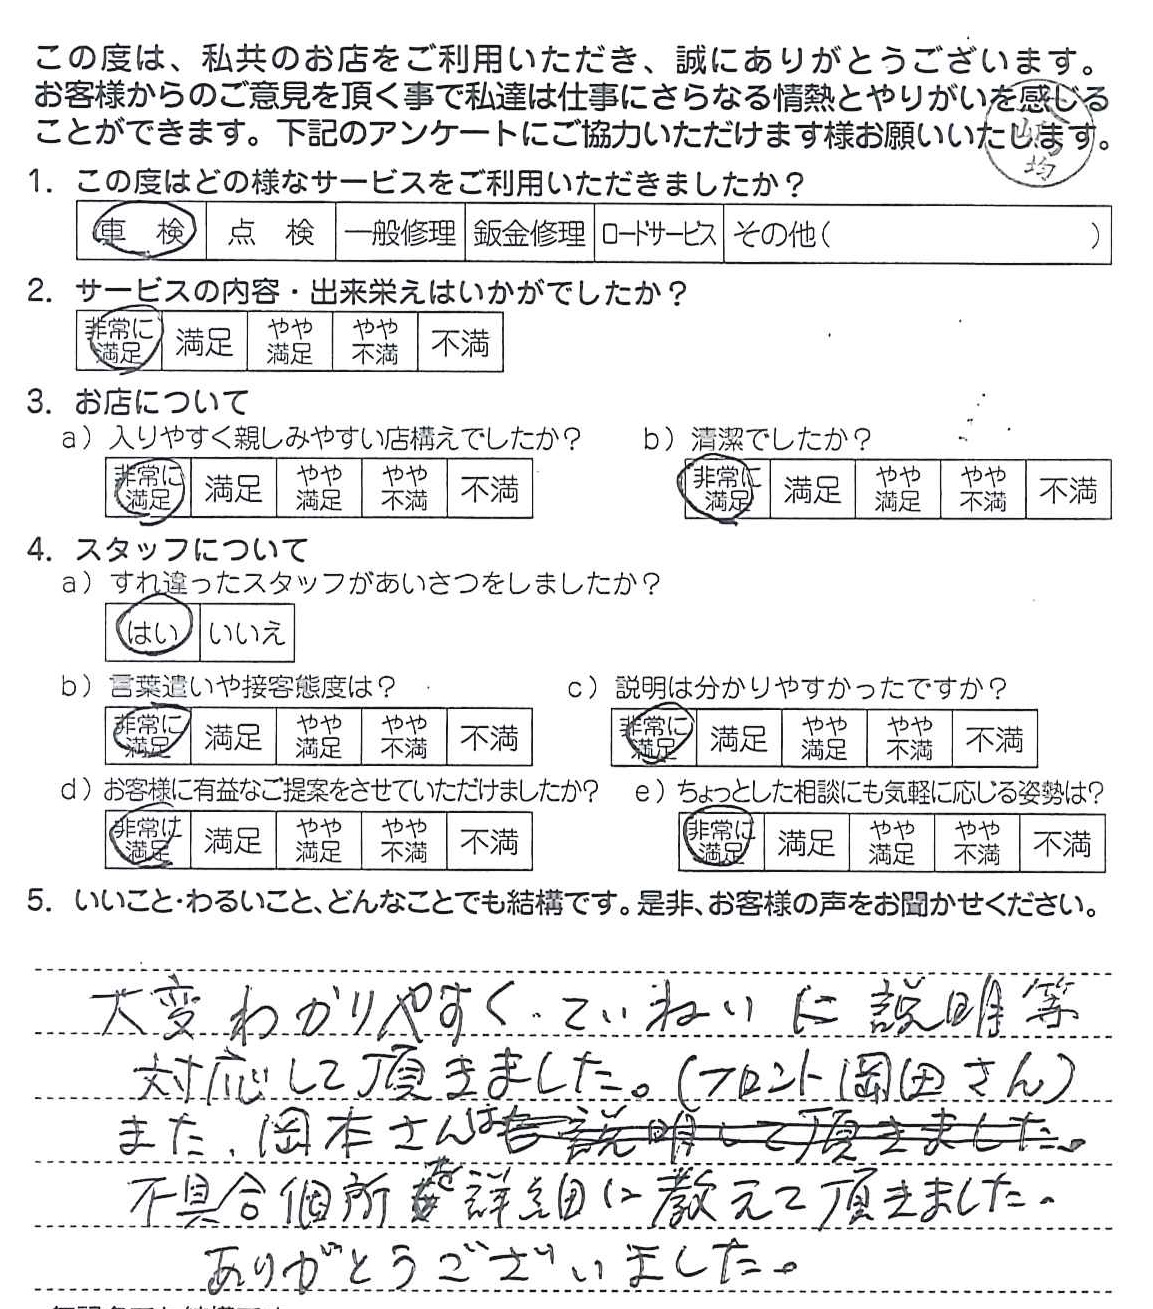 この度は、私共のお店をご利用いただき、誠にありがとうございます。
お客様からのご意見を頂く事で私達は仕事にさらなる情熱とやりがいを感じる
ことができます。下記のアンケートにご協力いただけます様お願いいたします。
均
1. この度はどの様なサービスをご利用いただきましたか？
車 検 点 検 一般修理 鈑金修理 ロードサービス その他( )
2. サービスの内容・出来栄えはいかがでしたか？
非常に満足 満足 やや満足 やや不満 不満
3. お店について
a) 入りやすく親しみやすい店構えでしたか？ b) 清潔でしたか？
非常に満足 満足 やや満足 やや不満 不満 非常に満足 満足 やや満足 やや不満 不満
4. スタッフについて
a) すれ違ったスタッフがあいさつをしましたか？
はい いいえ
b) 言葉遣いや接客態度は？ c) 説明は分かりやすかったですか？
非常に満足 満足 やや満足 やや不満 不満 非常に満足 満足 やや満足 やや不満 不満
d) お客様に有益なご提案をさせていただけましたか？ e) ちょっとした相談にも気軽に応じる姿勢は？
非常に満足 満足 やや満足 やや不満 不満 非常に満足 満足 やや満足 やや不満 不満
5. いいこと・わるいこと、どんなことでも結構です。是非、お客様の声をお聞かせください。
大変わかりやすく、ていねいに説明等
対応して頂きました。(フロント岡田さん)
また、岡本さんは説明して頂きました。
不具合個所を詳細に教えて頂きました。
ありがとうございました。